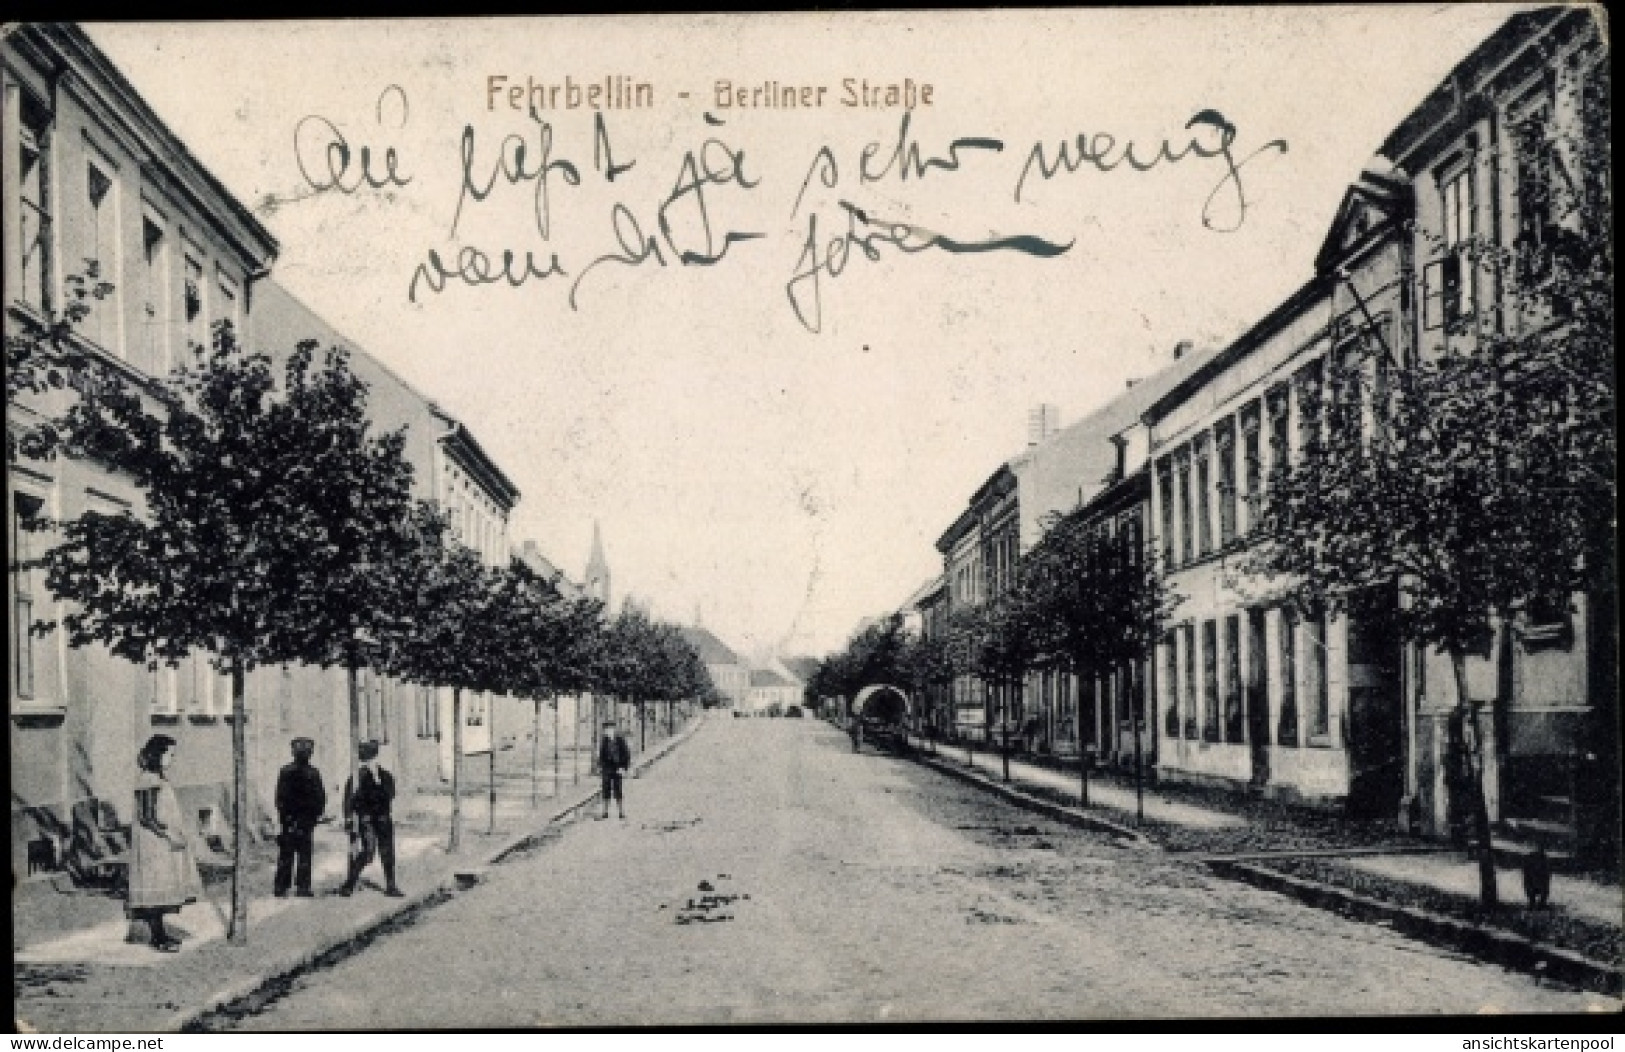 Fehrbellin - Berliner Straße
Du läßt ja sehr wenig
von Dir hören
www.delcampe.net
ansichtskartenpool